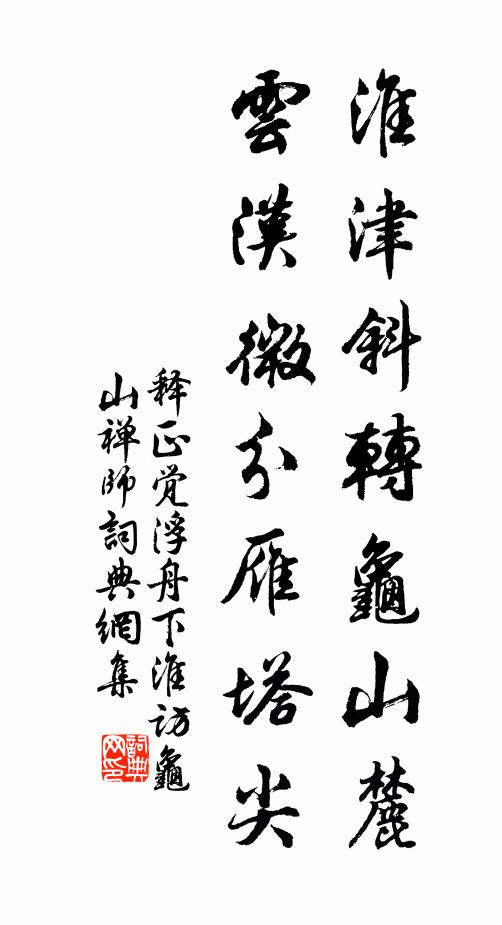 淮津斜轉龜山麓
雲漢微分雁塔尖
释正觉浮舟下淮访龜
山禅師詞典網集
詞典网印